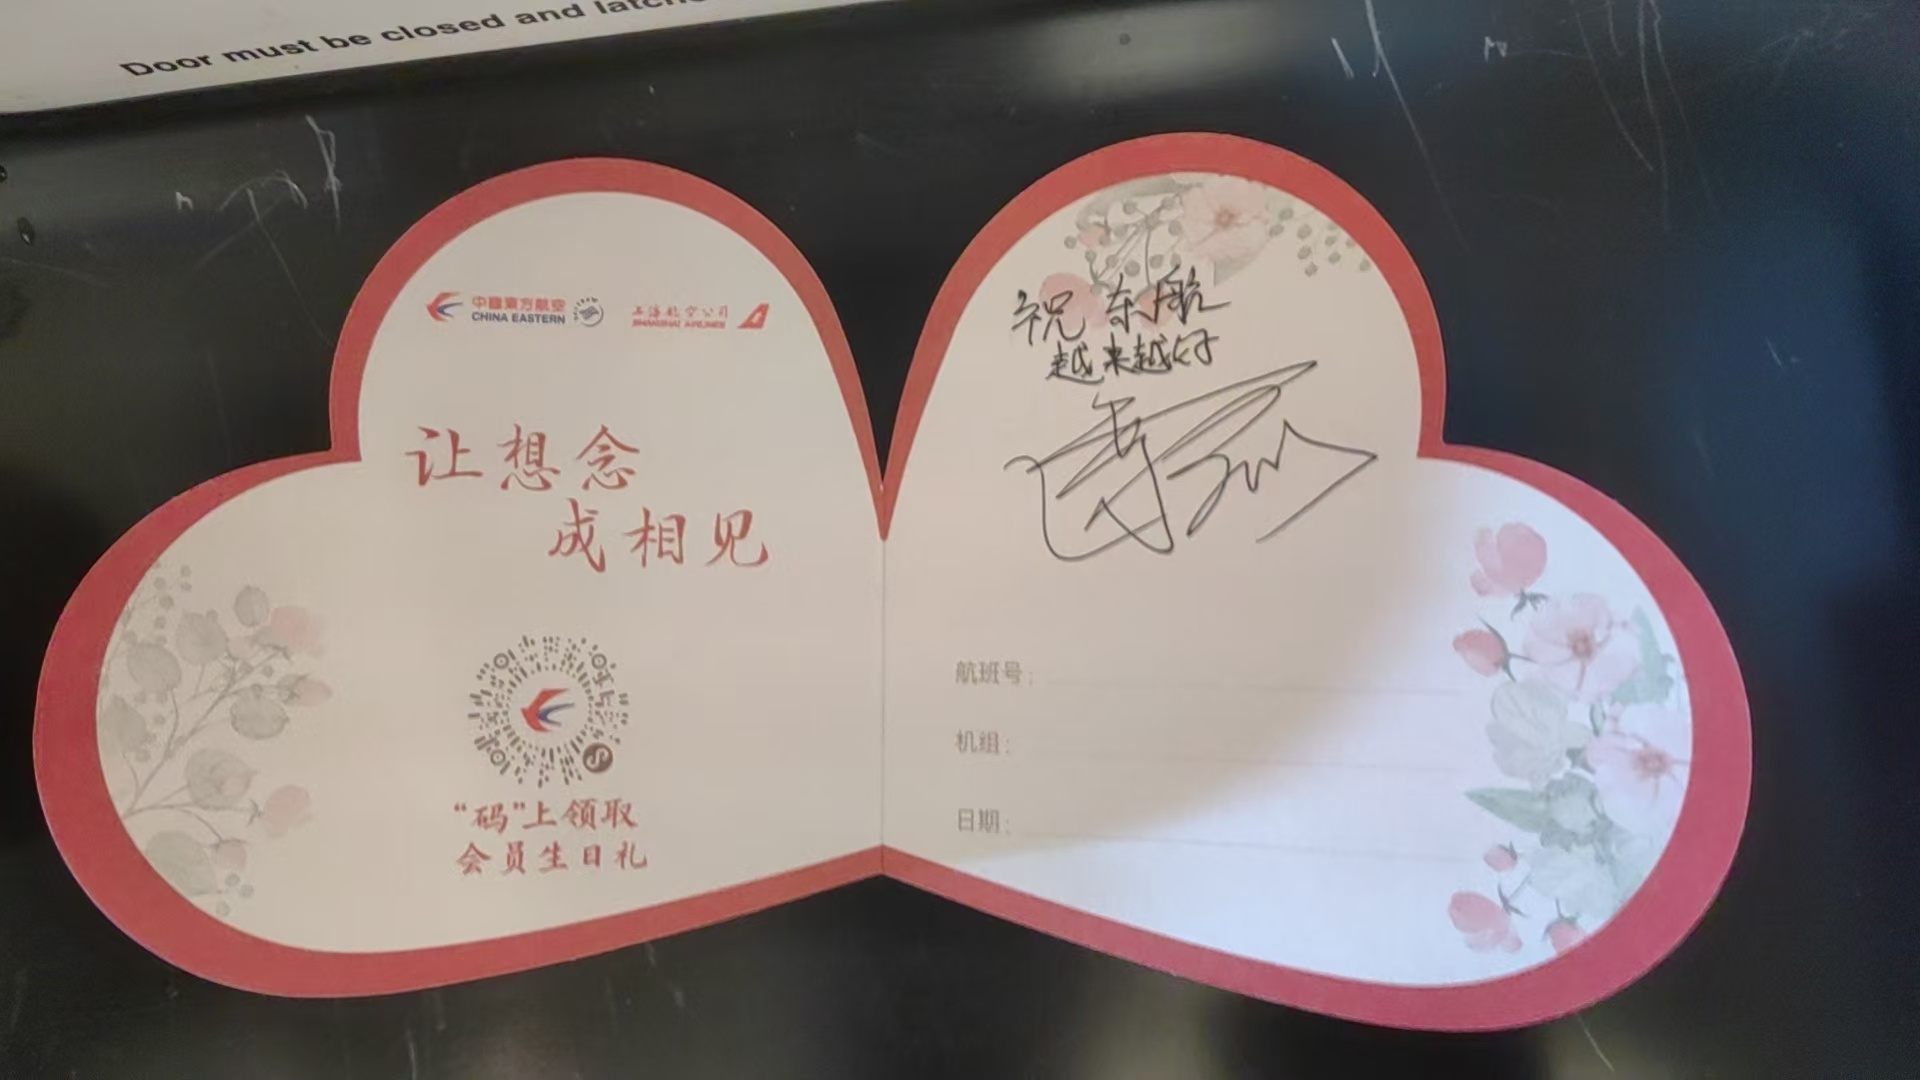 Door must be closed and latche
中國東方航空
CHINA EASTERN
上海航空公司
SHANGHAI AIRLINES
让想念
成相见
“码”上领取
会员生日礼
祝东航
越来越好
航班号：
机组：
日期：